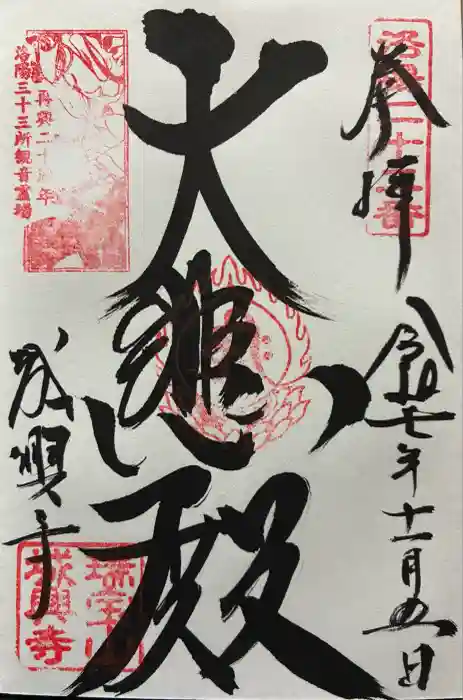 奉拝
洛陽二十一番
令和七年十一月五日
大悲殿
再興二十周年
洛陽三十三所観音霊場
城興寺
瑞宝山
城興寺